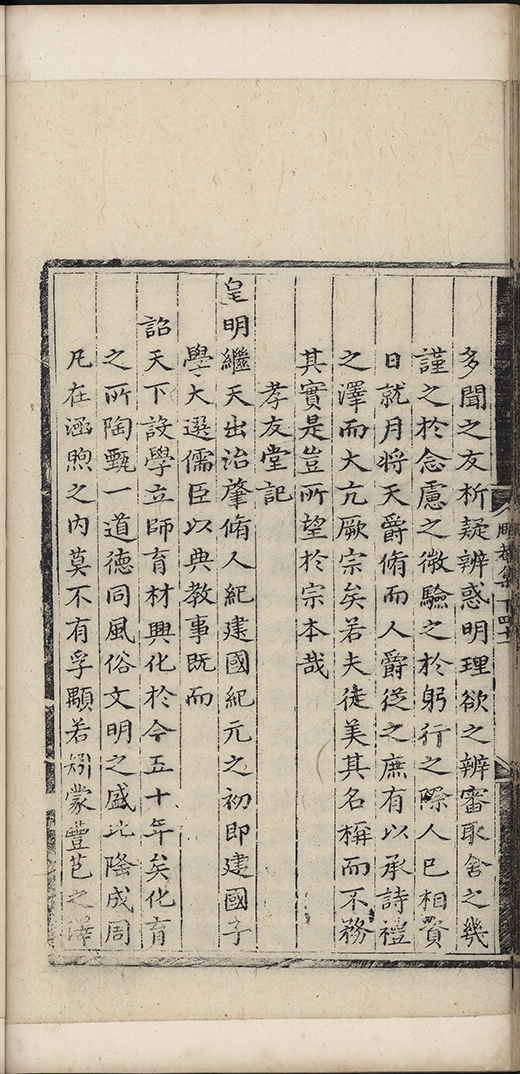 多聞之友析疑辨惑明理欲之辨審取舍之幾
謹之於念慮之微驗之於躬行之際人已相資
日就月將天爵脩而人爵從之庶有以承詩禮
之澤而大亢厥宗矣若夫徒美其名稱而不務
其實是豈所望於宗本哉
孝友堂記
皇明繼天出治肇脩人紀建國紀元之初即建國子
學大選儒臣以典教事既而
詔天下設學立師育材興化於今五十年矣化育
之所陶甄一道德同風俗文明之盛比隆成周
凡在涵煦之內莫不有孚顒若矧蒙豐芑之澤